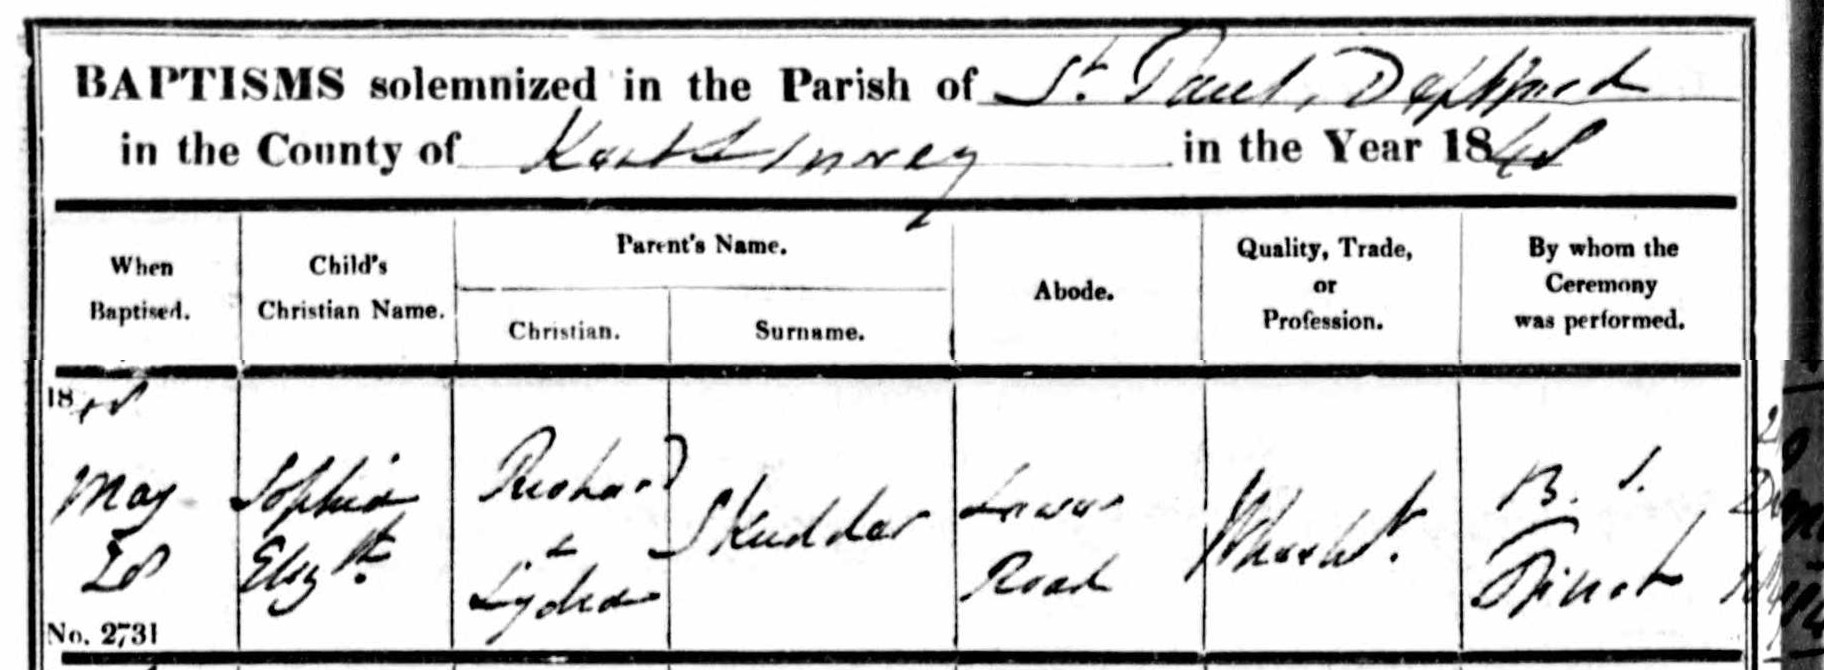 BAPTISMS solemnized in the Parish of St. Paul, Deptford
in the County of Kent & Surrey in the Year 1848
When Baptised.
Child's Christian Name.
Parent's Name.
Christian.
Surname.
Abode.
Quality, Trade, or Profession.
By whom the Ceremony was performed.
1848
May
28
No. 2731
Sophia
Elizth.
Richard
&
Lydia
Skudder
Lower
Road
B. S.